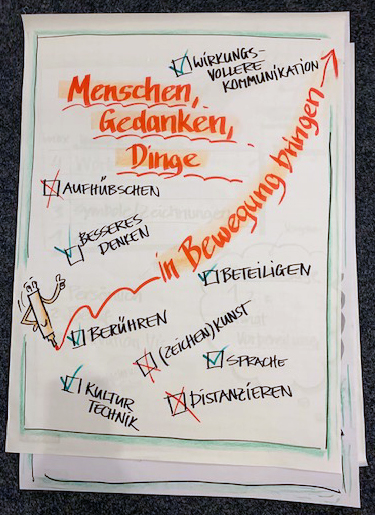 WIRKUNGS-
VOLLERE
KOMMUNIKATION
Menschen,
Gedanken,
Dinge
in Bewegung bringen
AUFHÜBSCHEN
BESSERES
DENKEN
BETEILIGEN
BERÜHREN
(ZEICHEN)KUNST
SPRACHE
KULTUR
TECHNIK
DISTANZIEREN